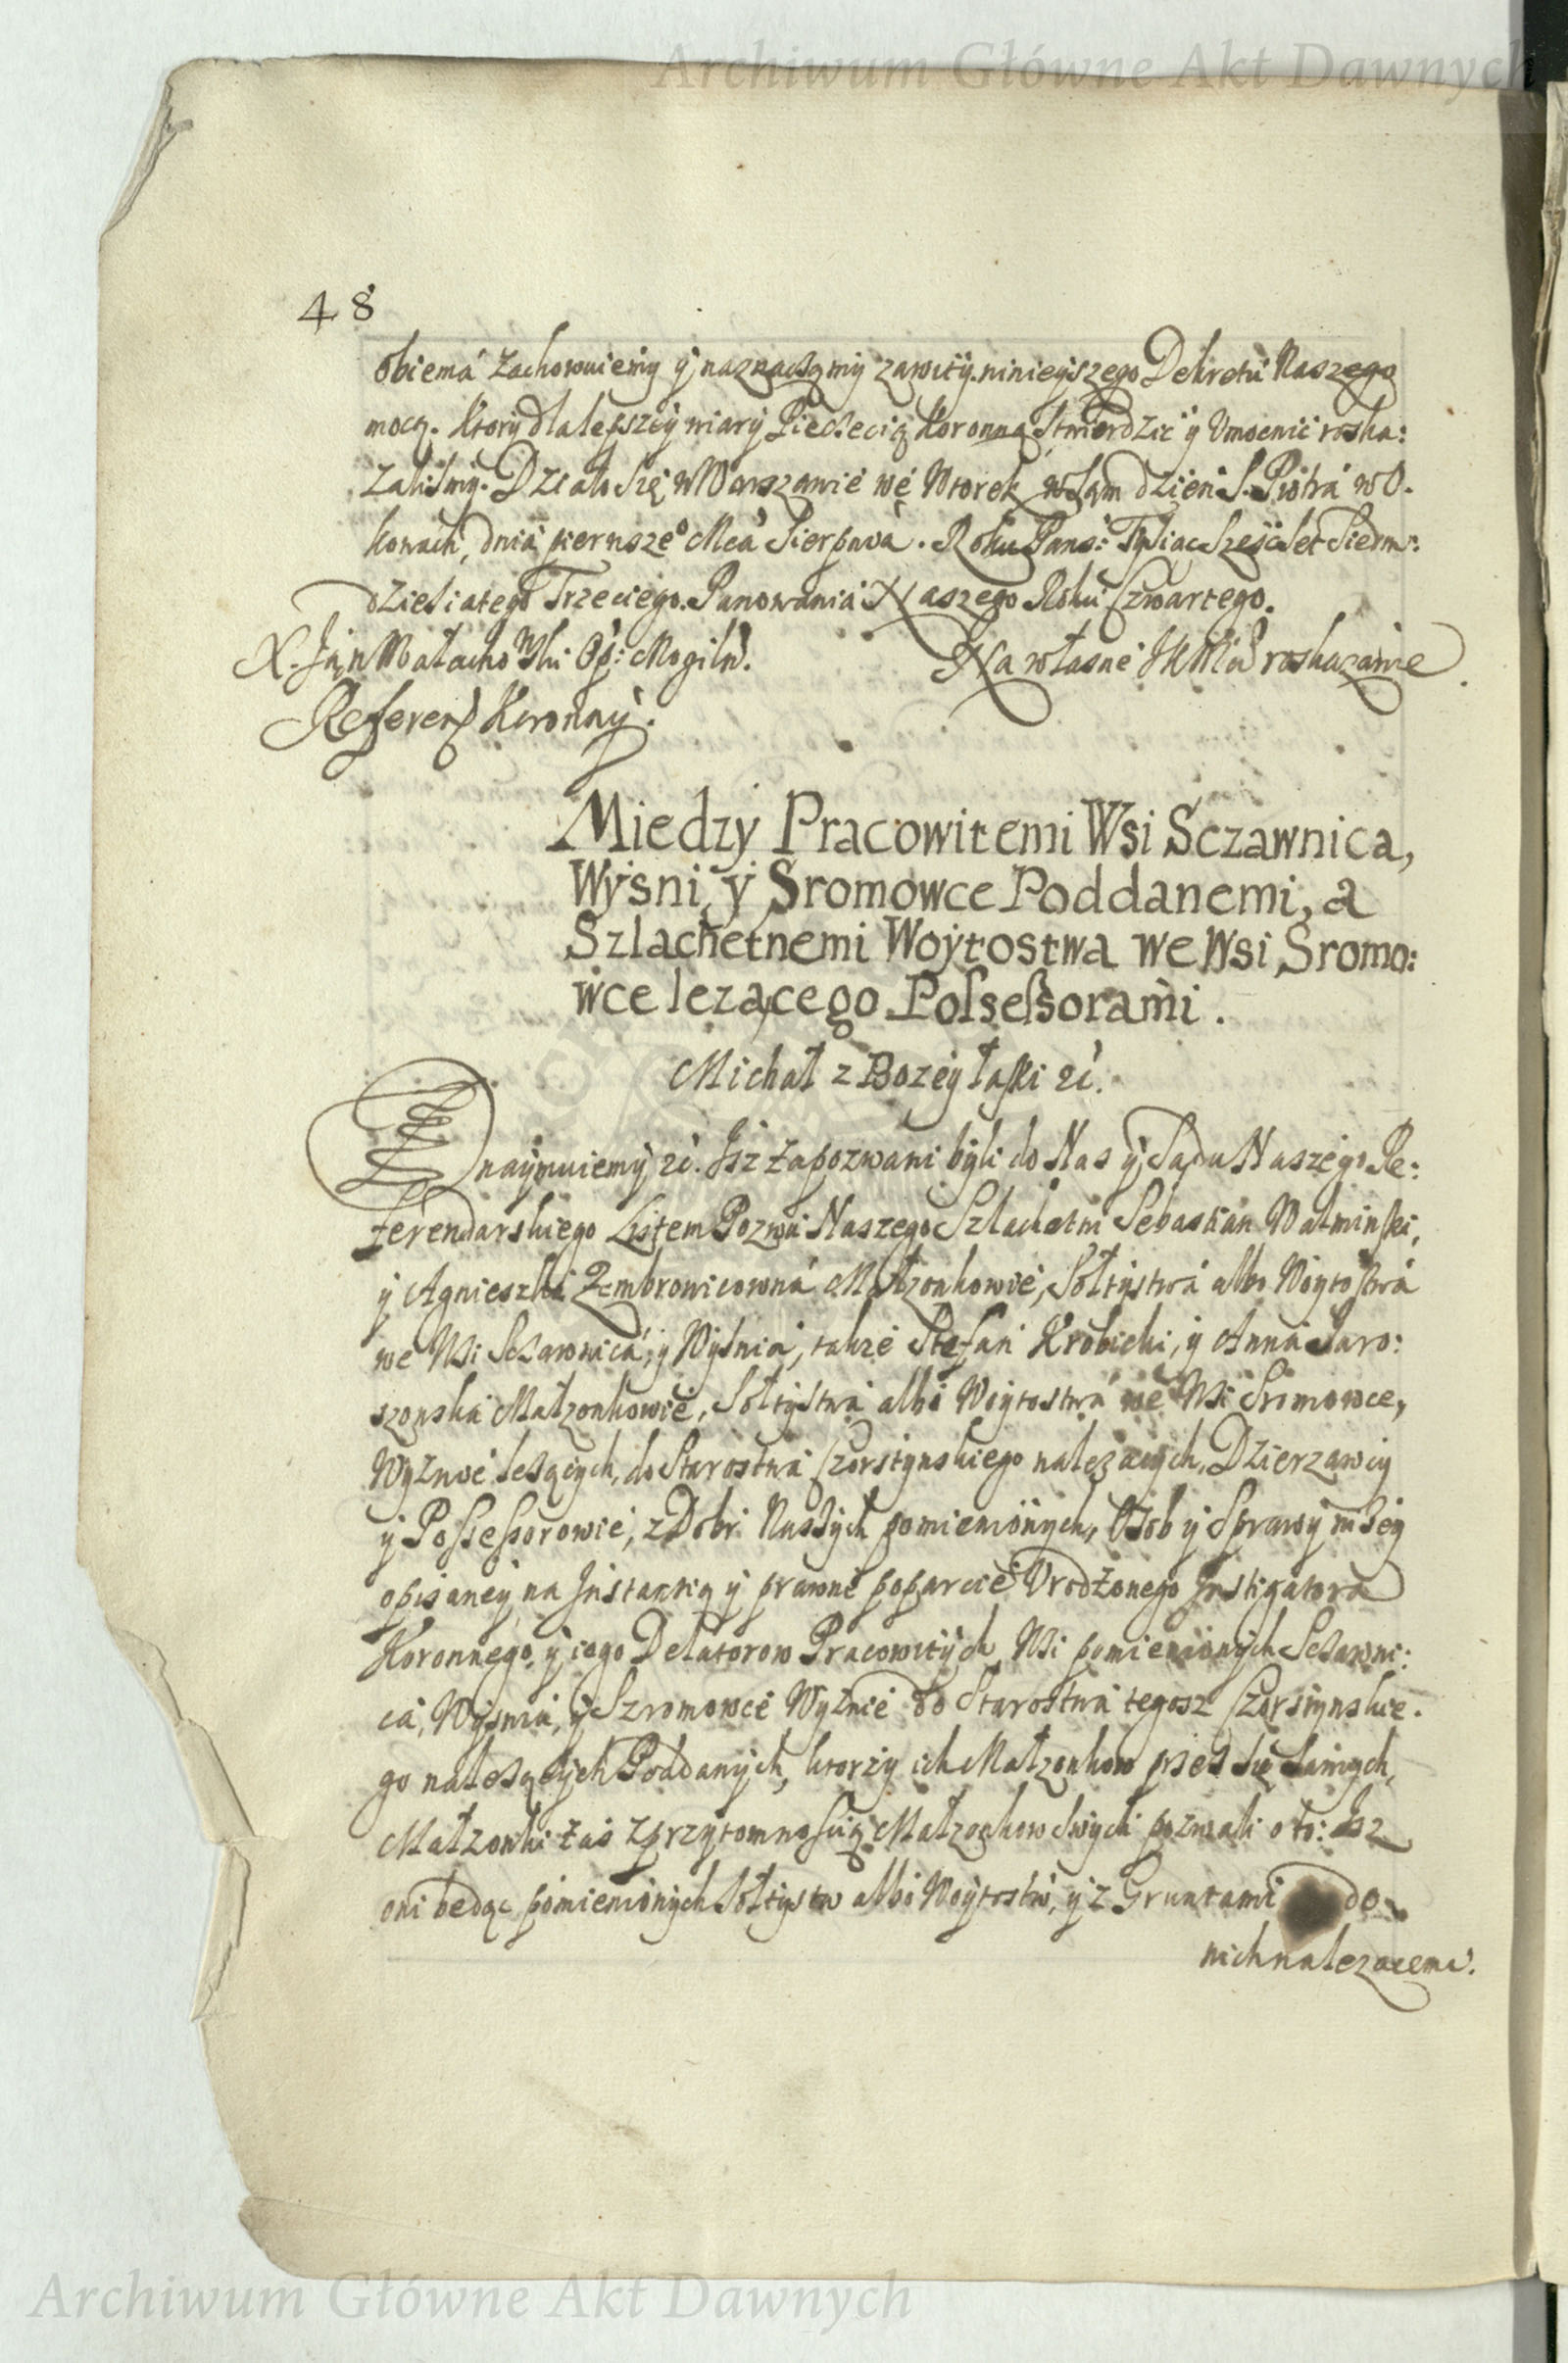 Archiwum Główne Akt Dawnych
48
obiema zachowuiemy y naznaczamy zawity. ninieyszego Dekretu Naszego
mocą. Ktory dla lepszey wiary Pieczęcią Koronną Stwierdzić y Umocnić roska:
zalismy. Działo się w Warszawie we Wtorek w sam dzien S. Piotra w O.
kowach, dnia pierwsze° Mca Sierpnia. Roku Pans: Tysiac Szescset Siedm:
dziesiatego Trzeciego. Panowania Naszego Roku Czwartego.
X. Jan Małacho Ski Op: Mogiln.
Na własne JKMci roskazanie
Referend Koronny.
Miedzy Pracowitemi Wsi Sczawnica,
Wysni, y Sromowce Poddanemi, a
Szlachetnemi Woytostwa we Wsi Sromo:
wce lezącego Possessorami.
Michał z Bozey łaski etc.
Znaymuiemy etc. Jsz zapozwani byli do Nas y Sądu Naszego Re:
ferendarskiego Listem Pozwu Naszego Szlachetni Sebastian Walminski,
y Agnieszka Zembrowicowna Małzonkowie, Sołtystwa albo Woytostwa
we Wsi Sczawnica, y Wysnia, także Stefan Krobicki, y Anna Jaro:
szowska Małzonkowie, Sołtystwa albo Woytostwa we Wsi Sromowce,
Wyznie lezących, do Starostwa Czorstynskiego nalezących, Dzierzawcy
y Possessorowie, z Dobr Naszych pomienionych, Osob y Sprawy nizey
opisaney na Jnstantią y prawne poparcie Urodzonego Jnstigatora
Koronnego, y iego Delatorow Pracowitych Wsi pomienionych Sczawni:
ca, Wysnia, y Szromowce Wyznie do Starostwa tegosz Czorstynskie.
go nalezących Poddanych, ktorzy ich Małzonkow przez się samych,
Małzonki zas z przytomnoscią Małzonkow swych pozwali o to: Jsz
oni bedąc pomienionych Sołtystw albo Woytostw, y z Gruntami do
nich nalezacemi.
Archiwum Główne Akt Dawnych